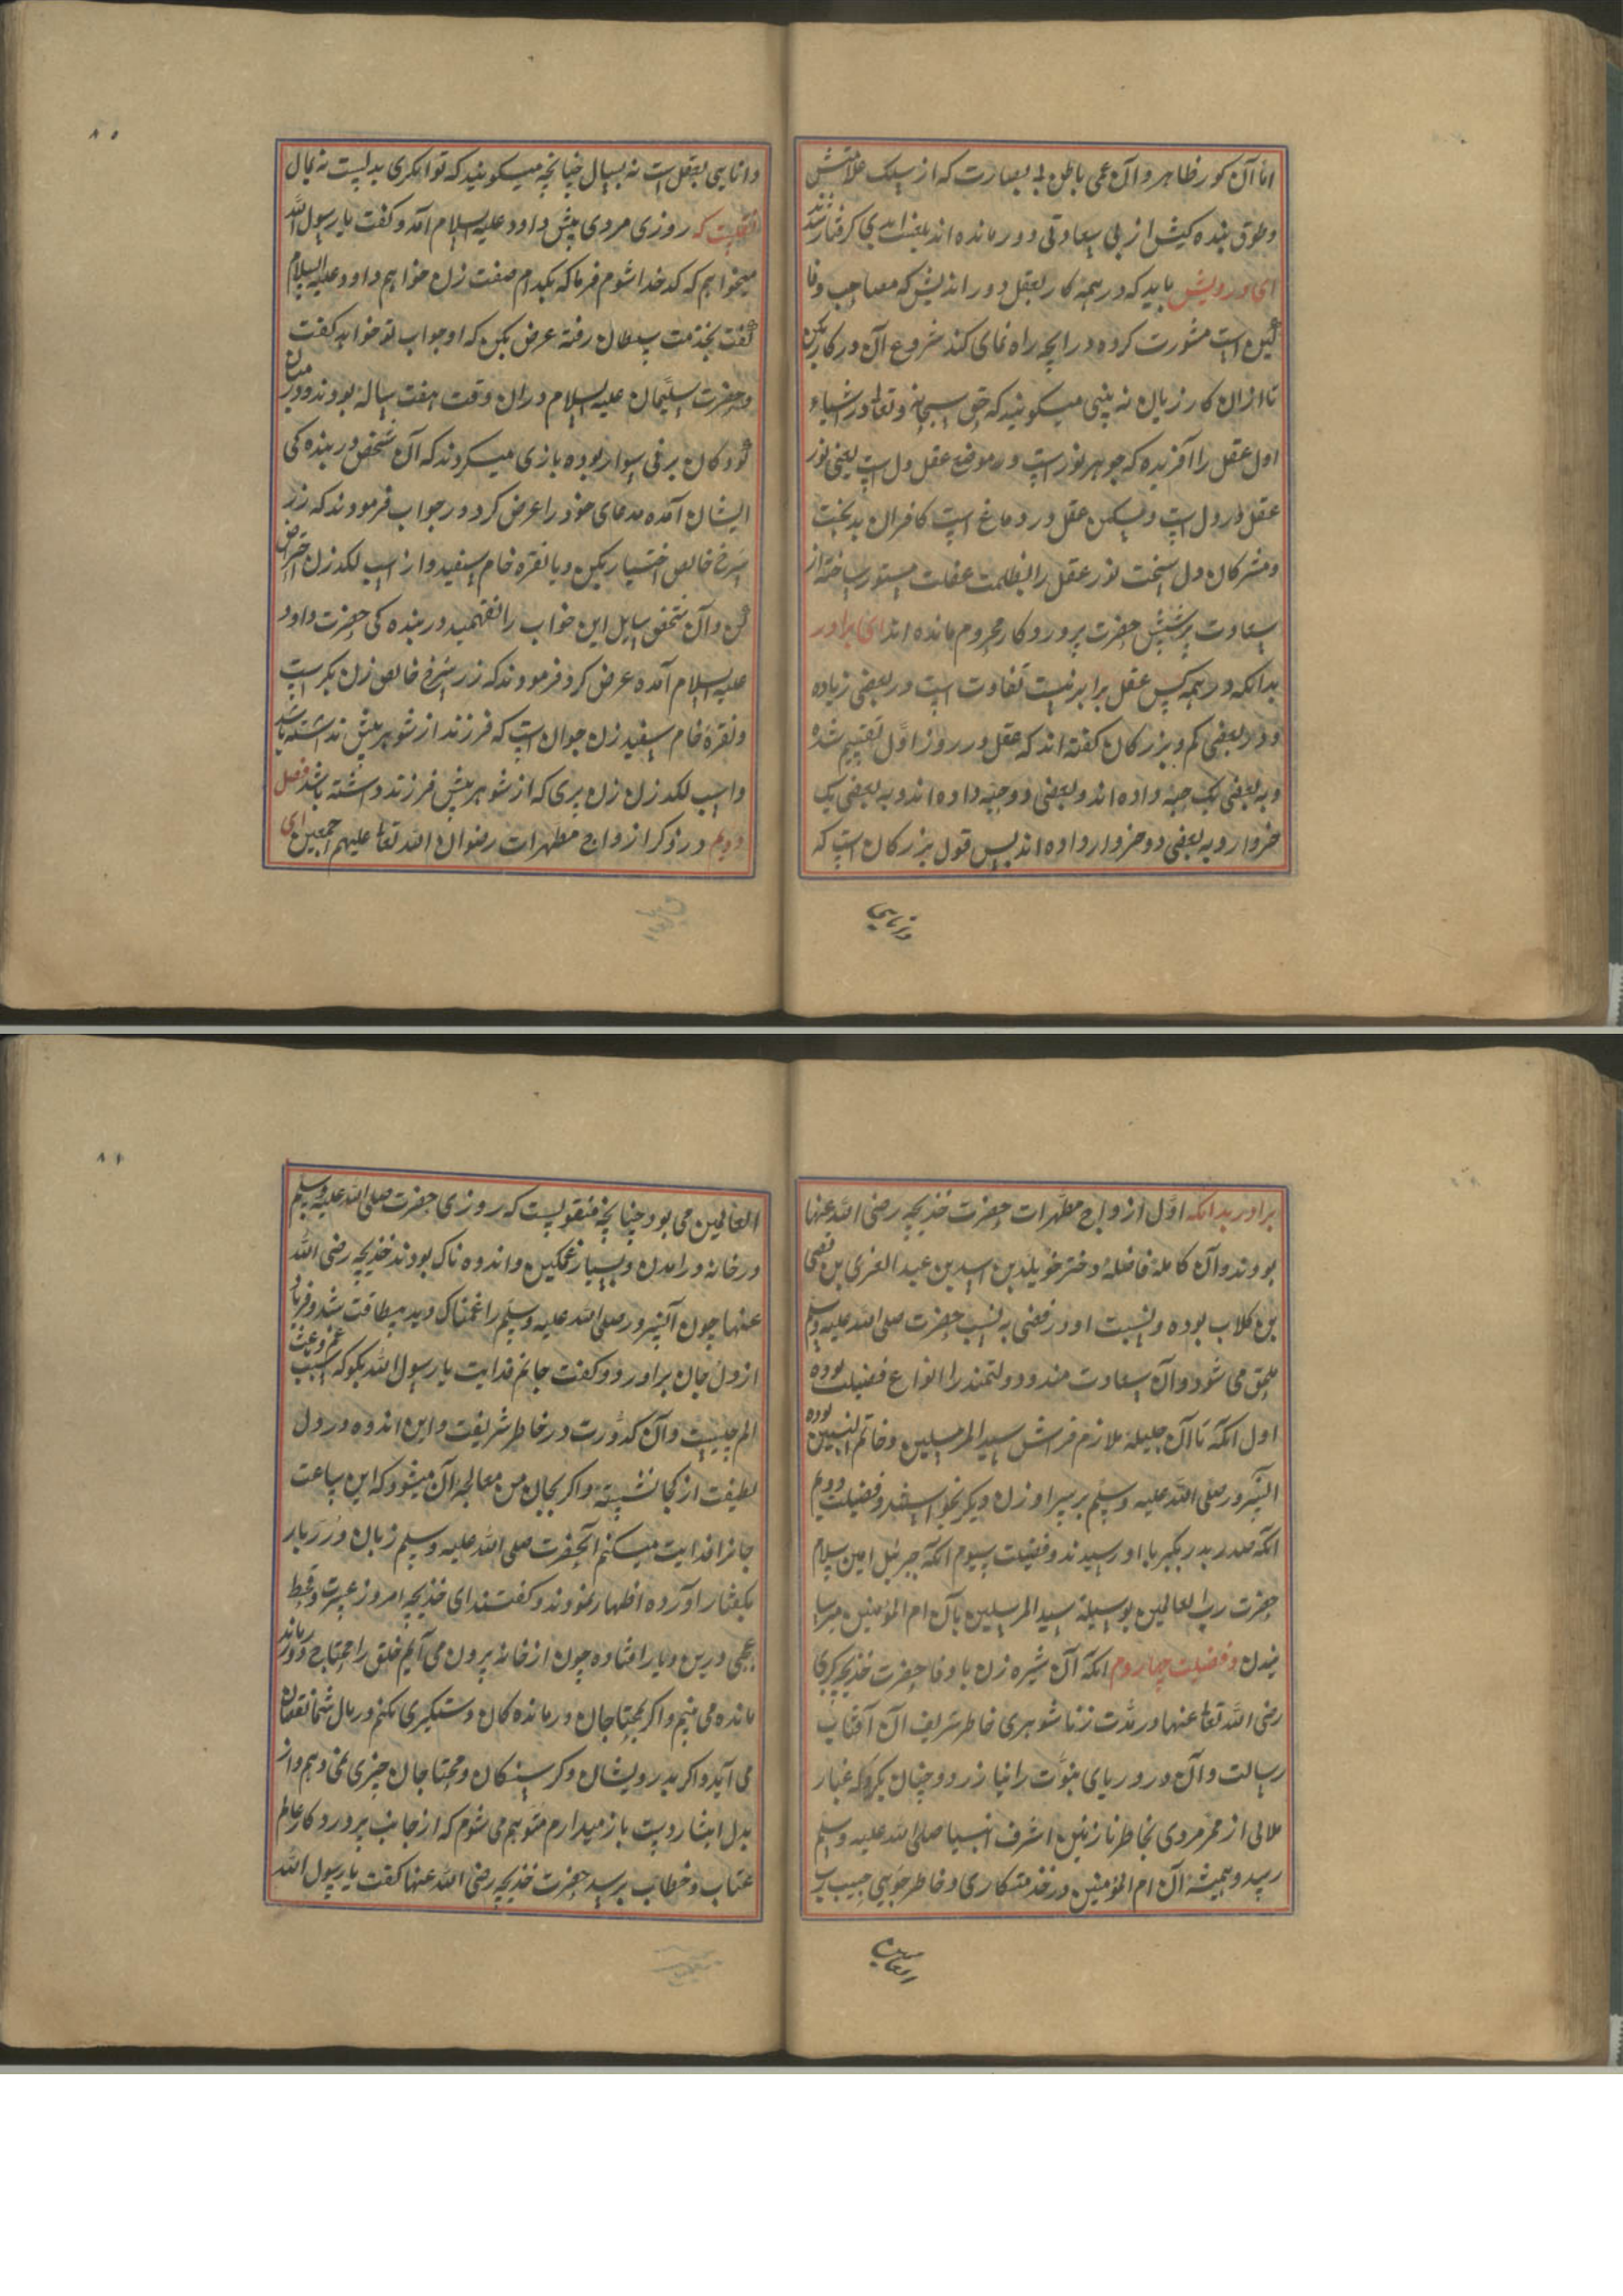 اما آن کور ظاهر و آن عمی باطن بی بصارت که از سلک
وطوق بنده کیش از بی سعادتی دور مانده اند بلعنت ابدی کرفتار شدند
ای درویش باید که در همه کار بعقل دور اندیش که مصاحب وفا
کیش است مشورت کرده درآنچه راه نمای کند شروع آن در کار بکن
تا ازان کار زیان نه بینی میکویند که حق سبحانه وتعالی در اشیاء
اول عقل را آفریده که جوهر نور است ودر موضع عقل دل است یعنی نور
عقل در دل است ولیکن عقل در دماغ است کافران بدبخت
ومشرکان دل سخت نور عقل را بظلمت غفلت مستور ساخته از
سعادت پرستش حضرت پروردکار محروم مانده اند ای برادر
بدانکه در همه کس عقل برابر نیست تفاوت است در بعضی زیاده
ودر بعضی کم وبزرکان کفته اند که عقل در روز اوّل تقسیم شده
وبه بعضی یک حبّه داده اند وبعضی دو حبّه داده اند وبه بعضی یک
خروار وبه بعضی دو خروار داده اند پس قول بزرکان است که
دانایی
۸۰
دانایی بعقل است نه بسال چنانچه میکویند که توانکری بدلست نه بمال
نقلست که روزی مردی پیش داود علیه السلام آمد وکفت یا رسول الله
میخواهم که کدخدا شوم فرما که بکدام صفت زن خواهم داود علیه السلام
کفت بخدمت سلطان رفته عرض بکن که او جواب تو خواهد کفت
وحضرت سلیمان علیه السلام دران وقت هفت ساله بودند ودر میان
کودکان بر نی سوار بوده بازی میکردند که آن شخص در بنده کی
ایشان آمده مدعای خود را عرض کرد در جواب فرمودند که زر
سرخ خالص اختیار بکن ویا نقره خام سفید واز اسب لکدزن احتراض
کن وآن شخص سایل این جواب را نفهمید در بنده کی حضرت داود
علیه السلام آمده عرض کرد فرمودند که زر سرخ خالص زن بکر است
ونقرهٔ خام سفید زن جوان است که فرزند از شوهر پیش نداشته باشد
واسب لکدزن زن پری که از شوهر پیش فرزند داشته باشد فصل
دویم در ذکر ازواج مطهرات رضوان الله تعالی علیهم اجمعین ای
برادر بدانکه اوّل ازواج مطهرات حضرت خدیجه رضی الله عنها
بودند وآن کاملهٔ فاضله دختر خویلد بن اسد بن عبد العزی بن قصی
بن کلاب بوده ونسبت او در قصی به نسب حضرت صلی الله علیه وسلم
ملحق می شود وآن سعادت مند ودولتمند را انواع فضیلت بوده
اول آنکه تا آن جلیله ملازم فراش سید المرسلین وخاتم النبیین بوده
آنسرور صلی الله علیه وسلم بر سر او زن دیکر نخواستند وفضیلت دویم
آنکه صدر بدر بکبر با او رسیدند وفضیلت سیوم آنکه جبرئیل امین سلام
حضرت رب العالمین بوسیلهٔ سید المرسلین بآن ام المؤمنین میرسا
نیدن وفضیلت چهاردم آنکه آن شیره زن باوفا حضرت خدیجه کبری
رضی الله تعالی عنها در مدت زناشوهری خاطر شریف آن آفتاب
رسالت وآن در دریای نبوّت را نیازرد وچنان نکرد که غبار
ملالی از ممر مردی بخاطر نازنین اشرف انبیا صلی الله علیه وسلم
رسد وهمیشه آن ام المؤمنین در خدمتکاری وخاطرجویی حبیب رب
العالمین
۸۱
العالمین می بود چنانچه منقولست که روزی حضرت صلی الله علیه وسلم
در خانه درامدن وبسیار غمکین واندوه ناک بودند خدیجه رضی الله
عنها چون آنسرور صلی الله علیه وسلم را غمناک دید بیطاقت شد وفریاد
از دل جان براورد وکفت جانم فدایت یا رسول الله بکو که سبب غم وغصّه
الم چیست وآن کدورت در خاطر شریفت واین اندوه در دل
لطیفت از کجا نشسته واکر بجان من معالجه آن میشود که این ساعت
جانرا فدایت میکنم آنحضرت صلی الله علیه وسلم زبان دُرَر بار
بکفتار آورده اظهار نمودند وکفتند ای خدیجه امروز عسرت وقحط
عجبی درین دیار افتاده چون از خانه برون می آیم خلق را محتاج ودرمانده
مانده می بینم واکر بمحتاجان ودرمانده کان دستکیری نکنم در مال شما نقصان
می آید واکر بدرویشان وکرسنکان ومحتاجان چیزی نمی دهم واز
بذل ایثار دست باز میدارم متوهم می شوم که از جانب پروردکار عالم
عتاب وخطاب برسد حضرت خدیجه رضی الله عنها کفت یا رسول الله